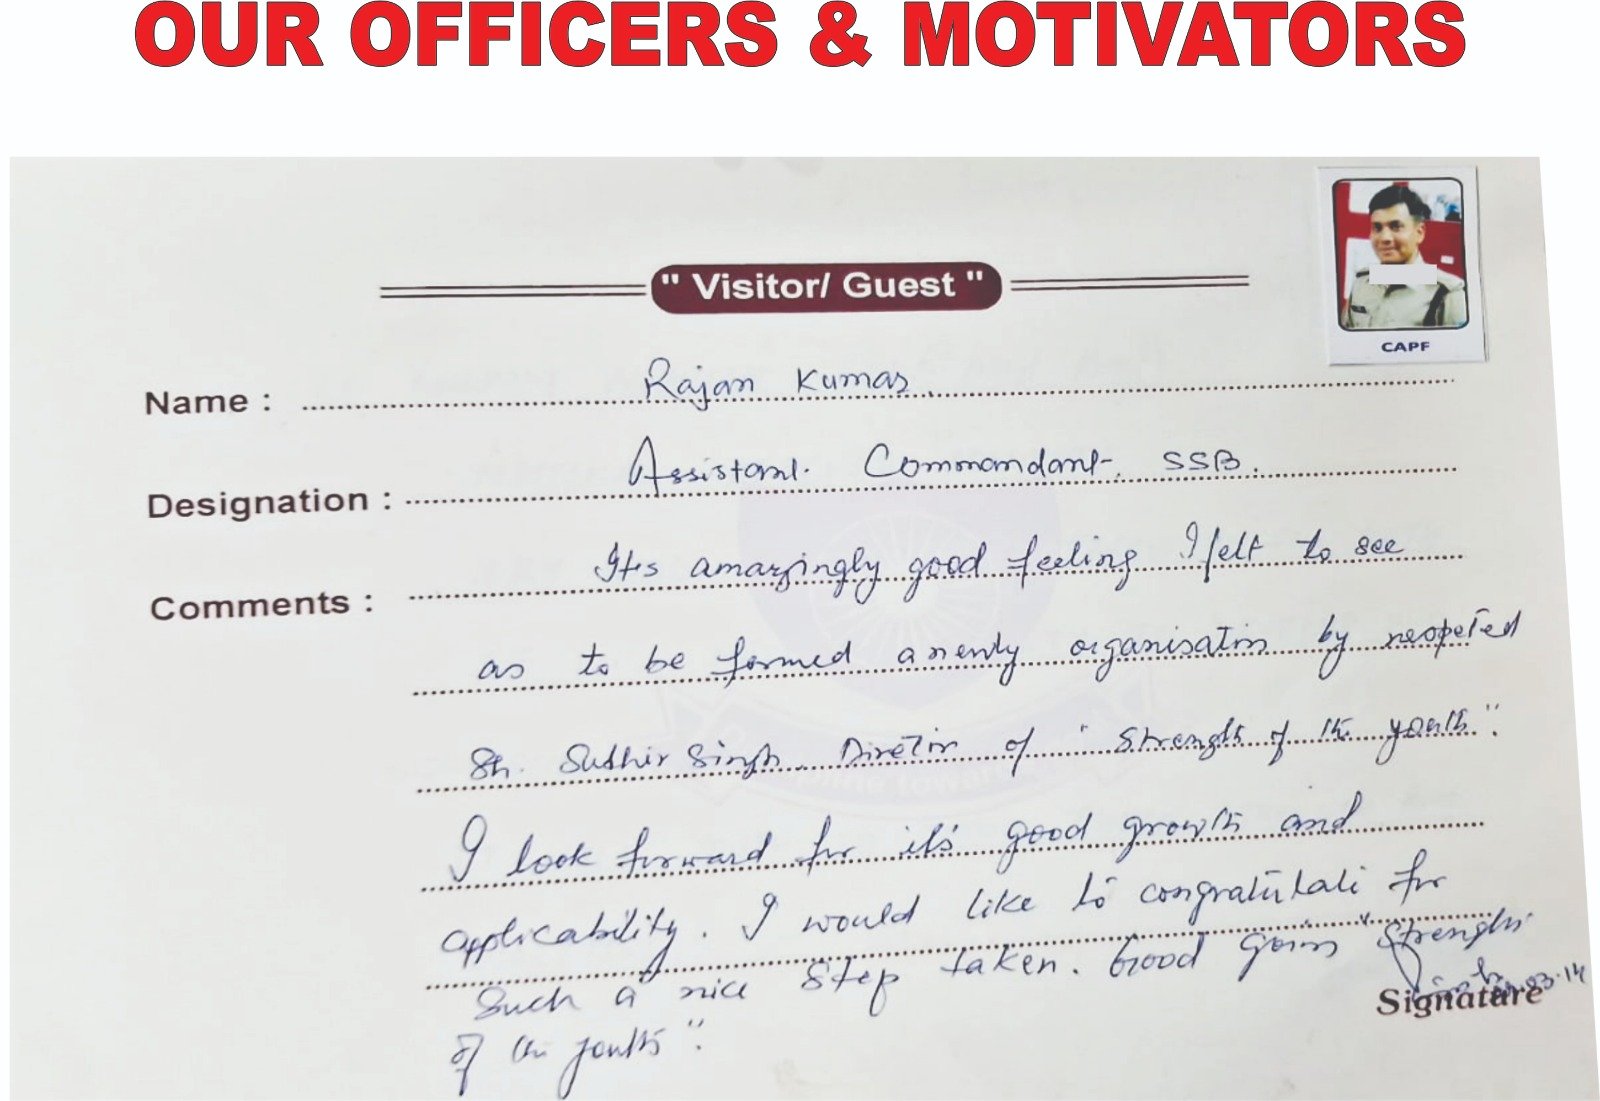 OUR OFFICERS & MOTIVATORS
CAPF
" Visitor/ Guest "
Name : Rajan Kumar.
Designation : Assistant. Commandant. SSB.
Comments : Its amazingly good feeling I felt to see
as to be formed a newly organisation by respected
Sh. Sudhir Singh. Director of "Strength of the youth".
I look forward for it's good growth and
applicability. I would like to congratulate for
such a nice step taken. Good going "Strength
of the youths".
Signature